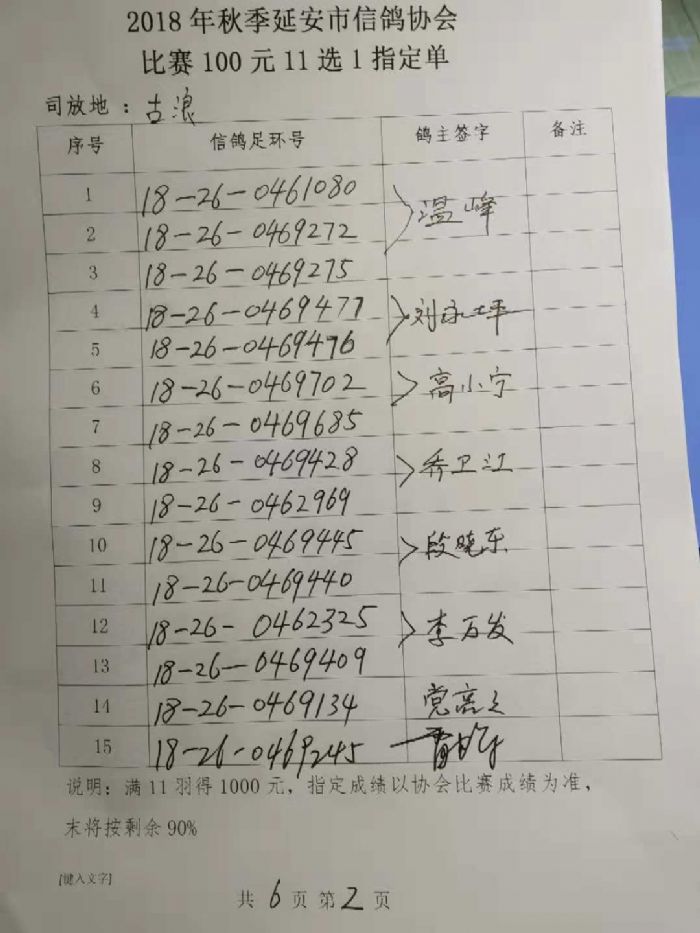 2018年秋季延安市信鸽协会
比赛100元11选1指定单
司放地：古浪
序号 信鸽足环号 鸽主签字 备注
1 18-26-0461080
2 18-26-0469272 温峰
3 18-26-0469275
4 18-26-0469477 刘永坪
5 18-26-0469476
6 18-26-0469702 高小宁
7 18-26-0469685
8 18-26-0469428 乔卫江
9 18-26-0462969
10 18-26-0469445 段晓东
11 18-26-0469440
12 18-26-0462325 李万发
13 18-26-0469409
14 18-26-0469134
15 18-26-0469245
说明：满11羽得1000元，指定成绩以协会比赛成绩为准，
末将按剩余90%
[键入文字]
共6页第2页